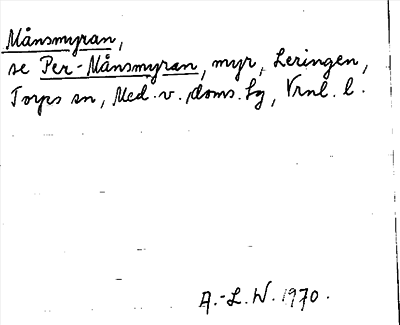 Månsmyran,
se Per-Månsmyran, myr, Leringen,
Torps sn, Med. v. doms. tg, Vrnl. l.
A.-L. W. 1970.